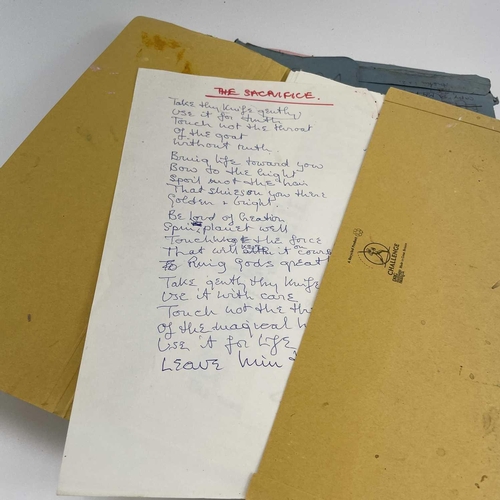 THE SACRIFICE.
Take thy knife gently
Use it for truth
Touch not the throat
Of the goat
Without ruth.
Bring life toward you
Bow to the light
Spoil not the hair
That shines on you there
Golden + bright.
Be Lord of Creation
Spin planet well
Touch not the force
That will keep it on course
To Ring Gods great
Take gently thy knife
Use it with care
Touch not the
of the magical
Use it for life
Leave him
CHALLENGE